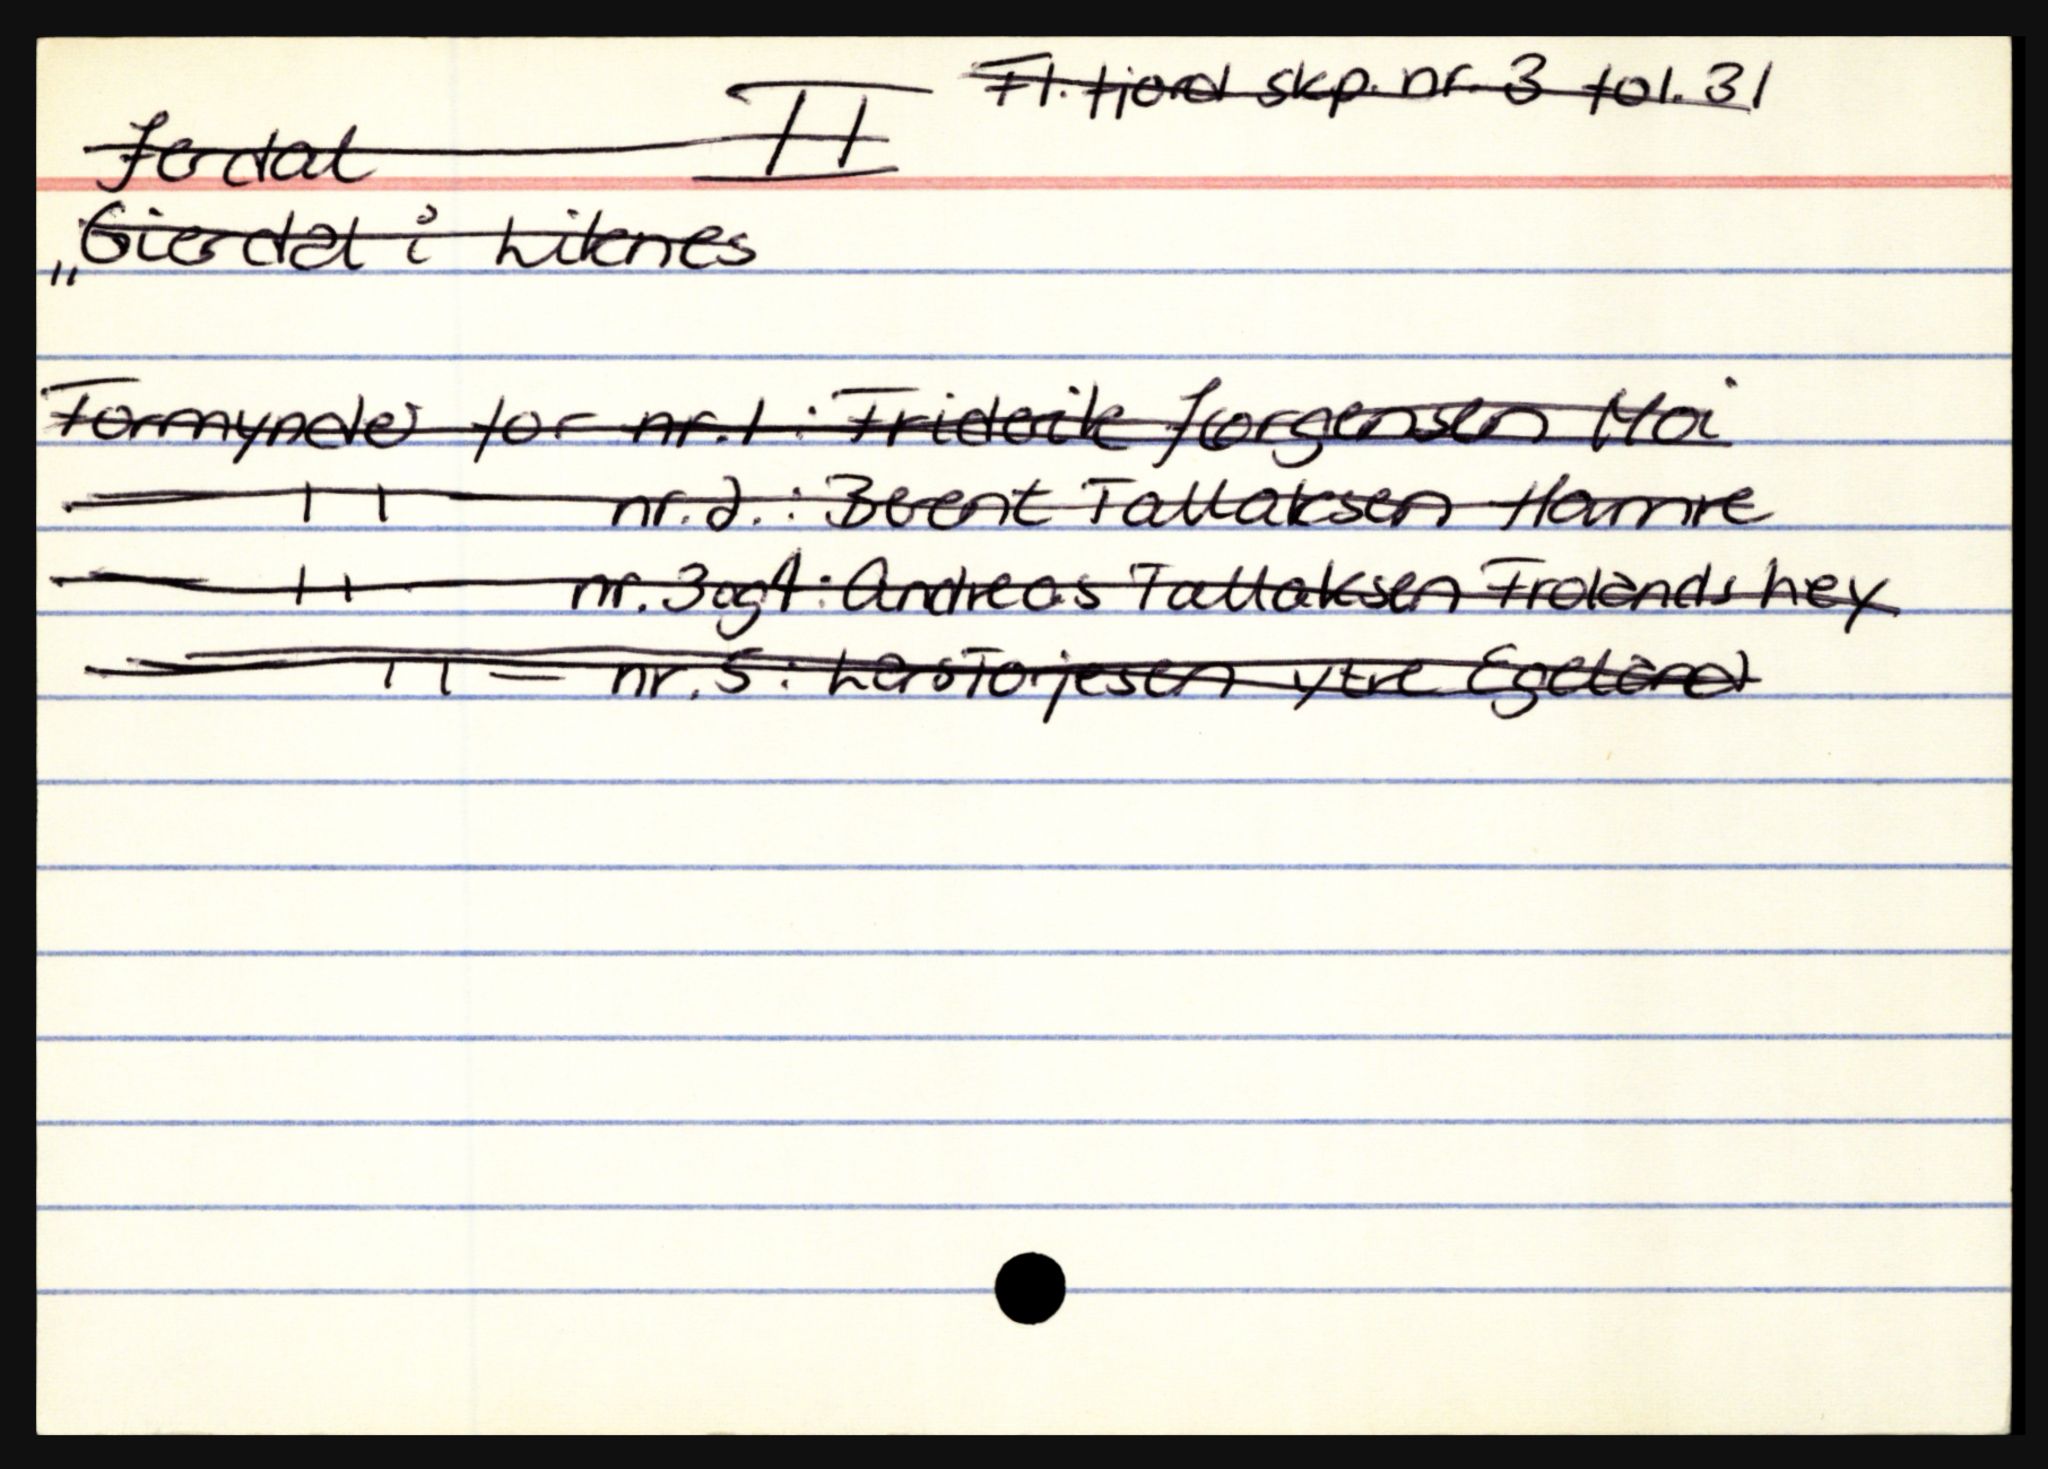 Jerdal II Fl.fjord skp. nr. 3 fol. 31
„Gierdal i Liknes
Formynder for nr. 1: Friderik Jørgensen Moi
— " — nr. 2.: Berent Tallaksen Hamre
— " — nr. 3 og 4: Andreas Tallaksen Frolandshey
— " — nr. 5: Lars Torjesen ytre Egeland